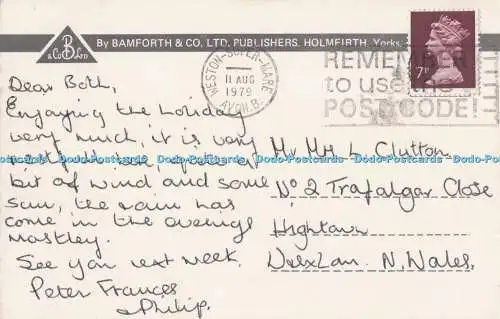 B
& CO LTD
By BAMFORTH & CO. LTD. PUBLISHERS. HOLMFIRTH. Yorks.
WESTON-SUPER-MARE
11 AUG
1979
AVON. B.
REMEMBER
to use the
POSTCODE!
7P
Dear Both,
Enjoying the holiday
very much, it is very
here, quite a
bit of wind and some
sun, the rain has
come in the evenings
mostley.
See you next week.
Peter Frances
& Philip.
Mr Mrs L Clutton
No 2 Trafalgar Close
Hightown
Wrexham. N. Wales.
Dodo-Postcards Dodo-Postcards Dodo-Postcards Dodo-Postcards Dodo-Postcards